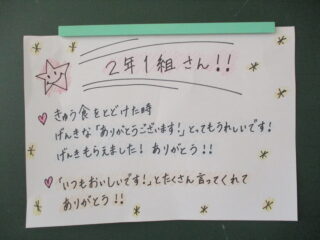 2年1組さん!!
きゅう食をとどけた時
げんきな「ありがとうございます!」とってもうれしいです!
げんきもらえました! ありがとう!!
「いつもおいしいです!」とたくさん言ってくれて
ありがとう!!